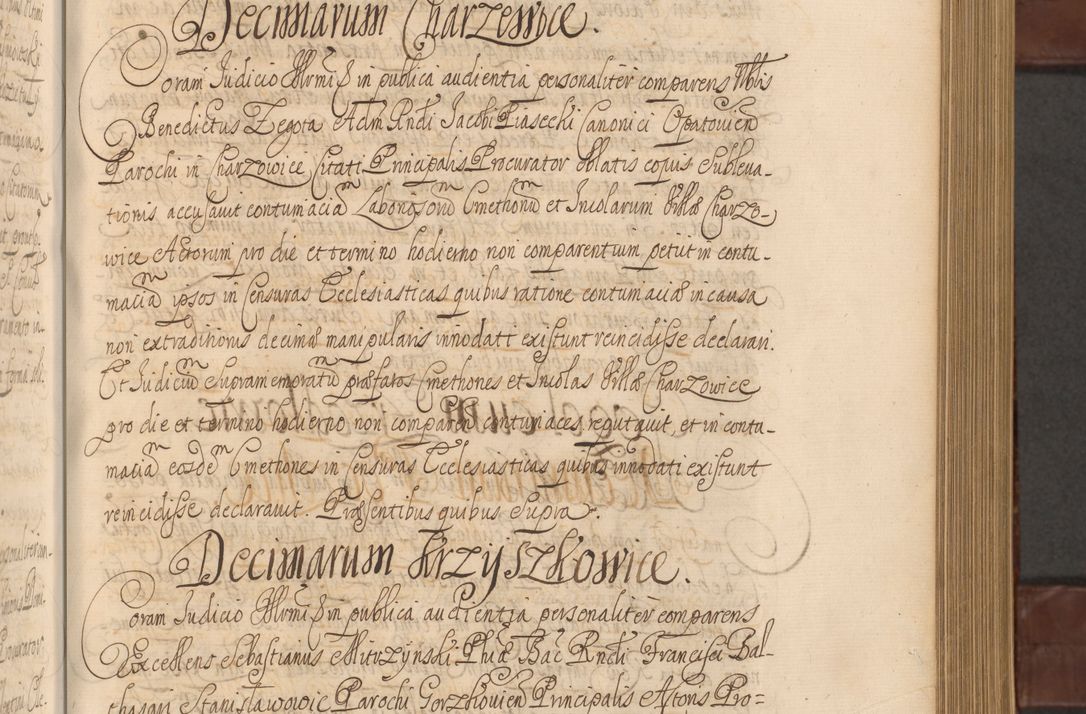 Decimarum Charzewice.
Coram Judicio Illrmi &c in publica audientia personaliter comparens Nblis
Benedictus Zegota Adm Rndi Jacobi Piasecki Canonici Opatovien
Parochi in Charzowice Citati Principalis Procurator oblatis copus subleva-
tionis accusavit contumaciam Laboriosorum Cmethonum et Incolarum Villæ Charzo-
wice Actorum pro die et termino hodierno non comparentium petiit in contu-
maciam ipsos in Censuras Ecclesiasticas quibus ratione contumaciæ in causa
non extraditionis decimæ manipularis innodati existunt reincidisse declarari.
Et Judicium supramemoratum præfatos Cmethones et Incolas Villæ Charzowice
pro die et termino hodierno non comparen contumaces reputavit, et in contu-
maciam eosdem Cmethones in Censuras Ecclesiasticas quibus innodati existunt
reincidisse declaravit. Præsentibus quibus supra.
Decimarum Krzyszkowice.
Coram Judicio Illrmi &c in publica audientia personaliter comparens
Excellens Sebastianus Mitrzynski Phiæ Bac Rndi Francisci Bal-
thasari Stanislawowic Parochi Gorzkovien Principalis Actoris Pro=